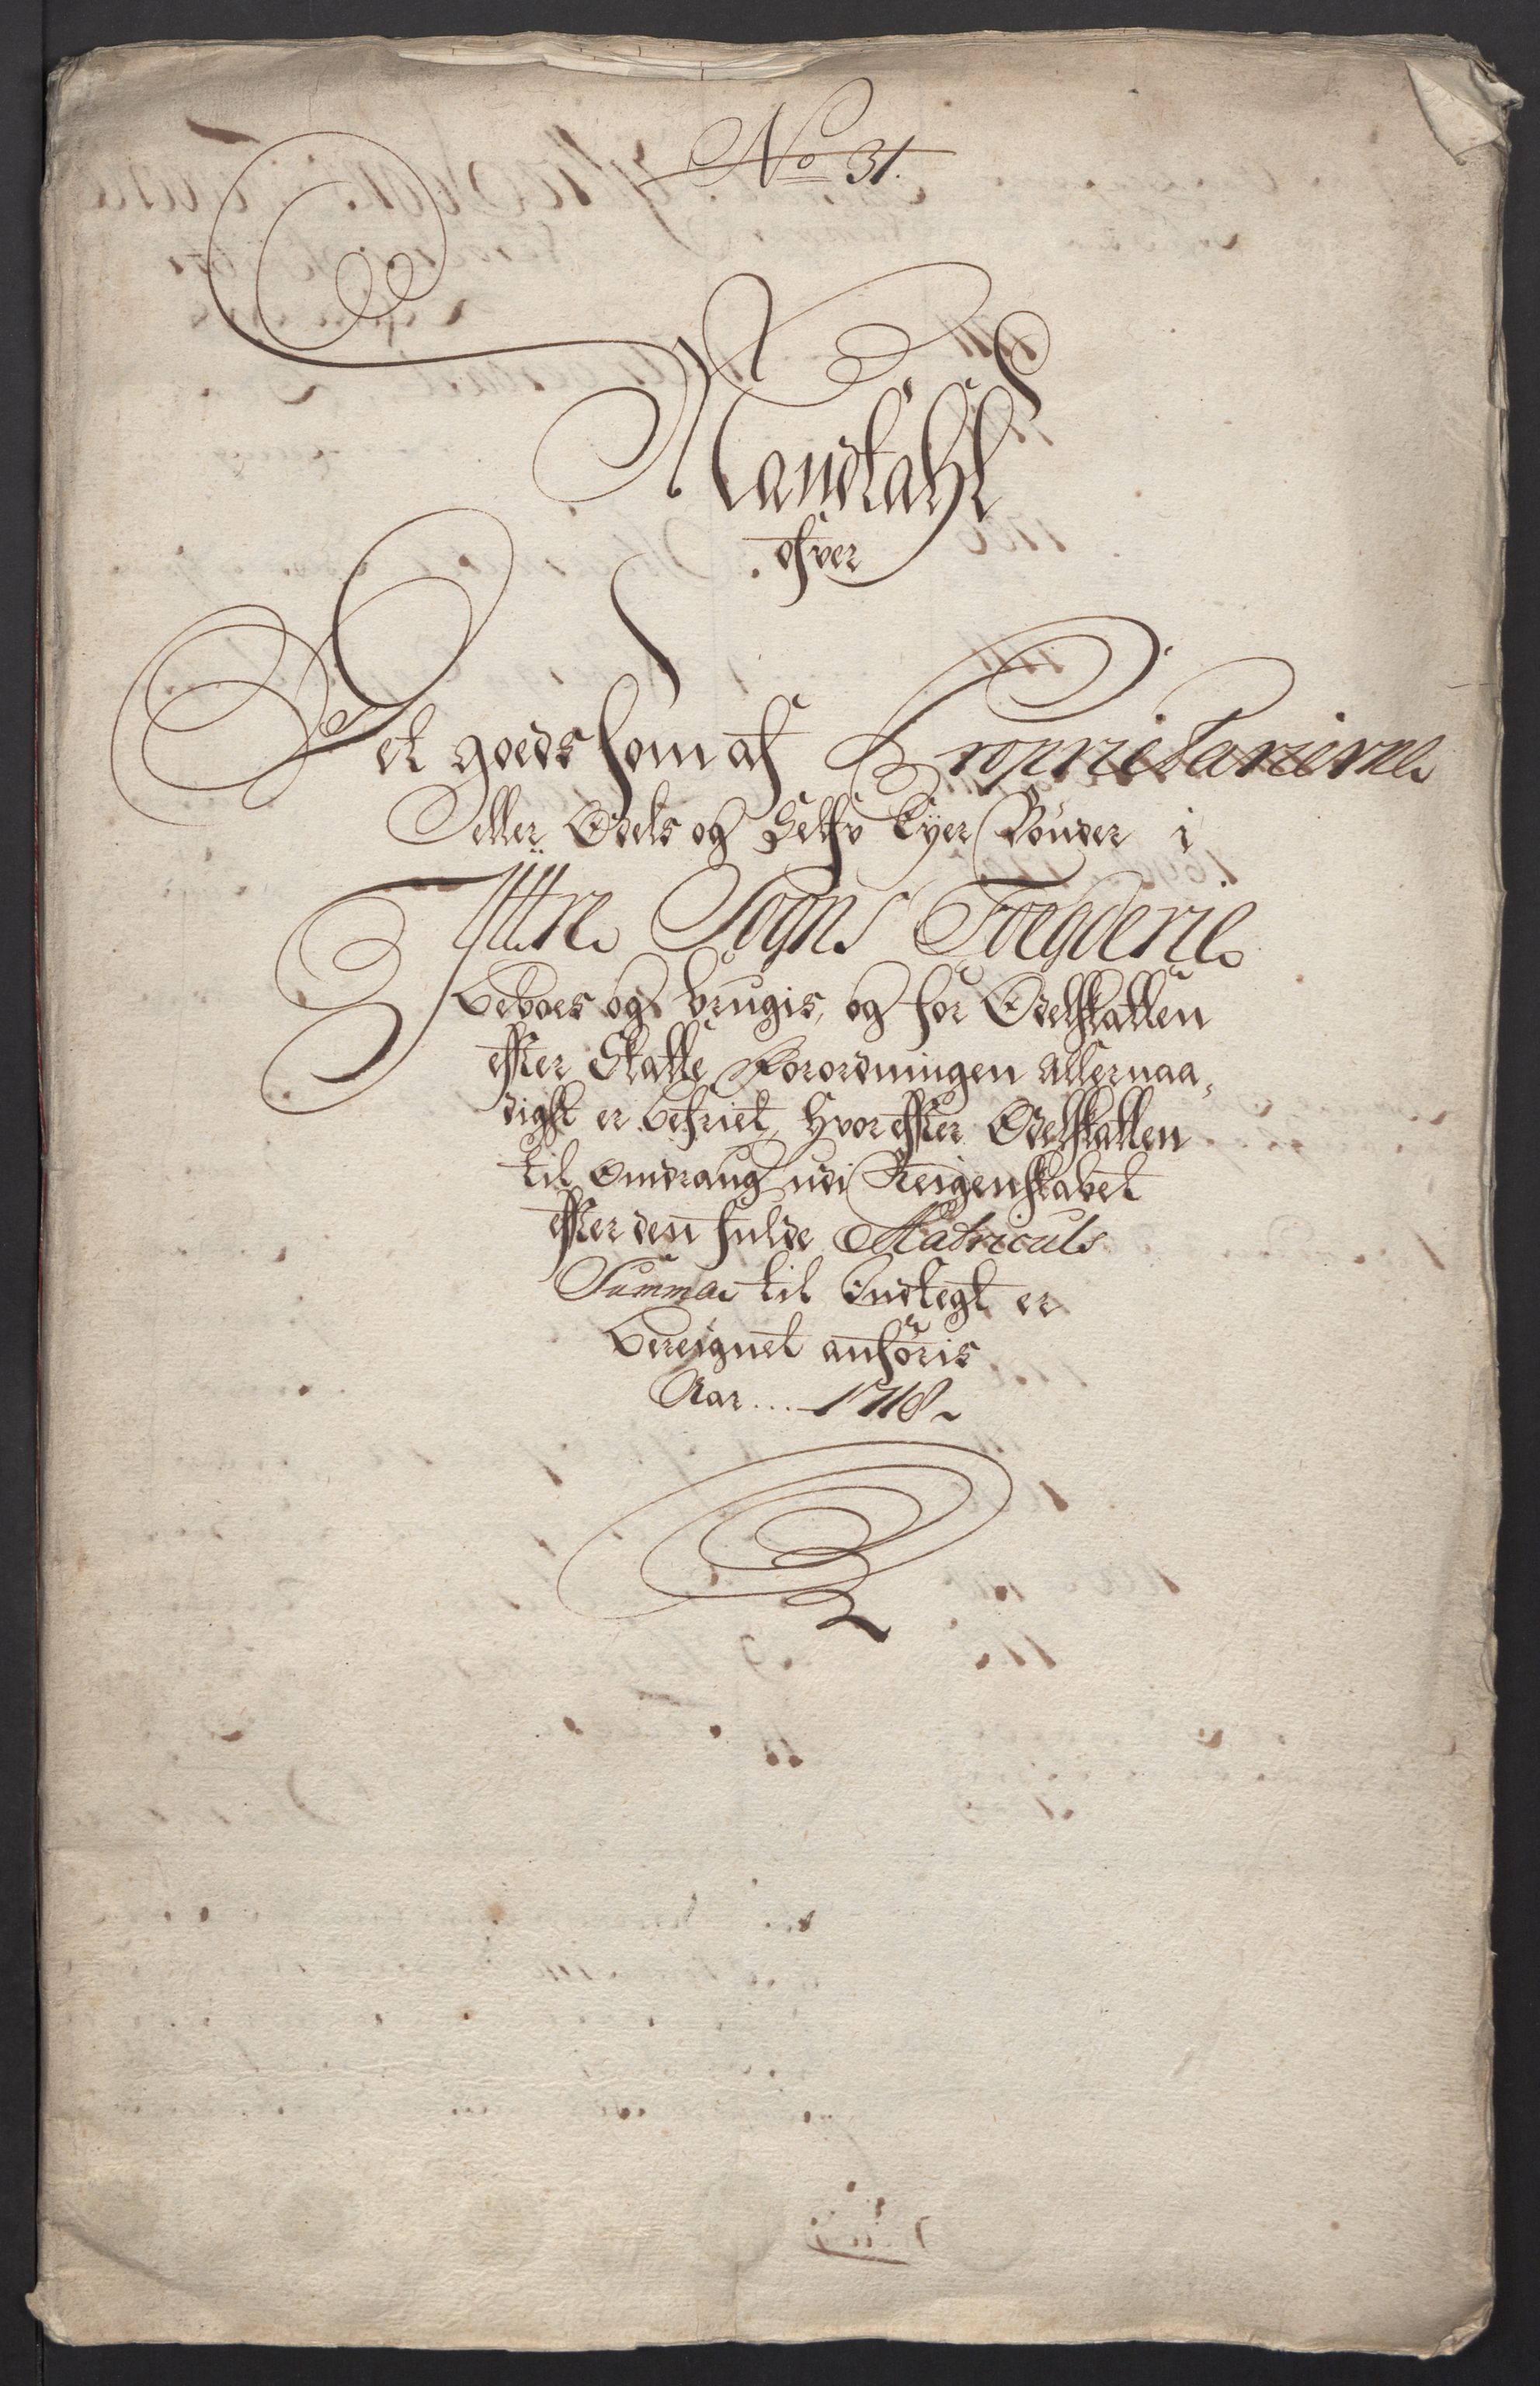 No 31.
Mandtahl
ofver
Det goeds som af Proprietarierne
eller Odels og Selfv Eyer Bönder i
Ÿttre Sogns Foegderie
Beboes og brugis, og for Odelskatten
effter Skatte Forordningen allernaa,
digst er befriet, hvor effter Odelskatten
til Omdraug udi Reigenskabet
effter den fulde Matriculs
Summa til Indtegt er
bereignet anföris
Aar .... 1718